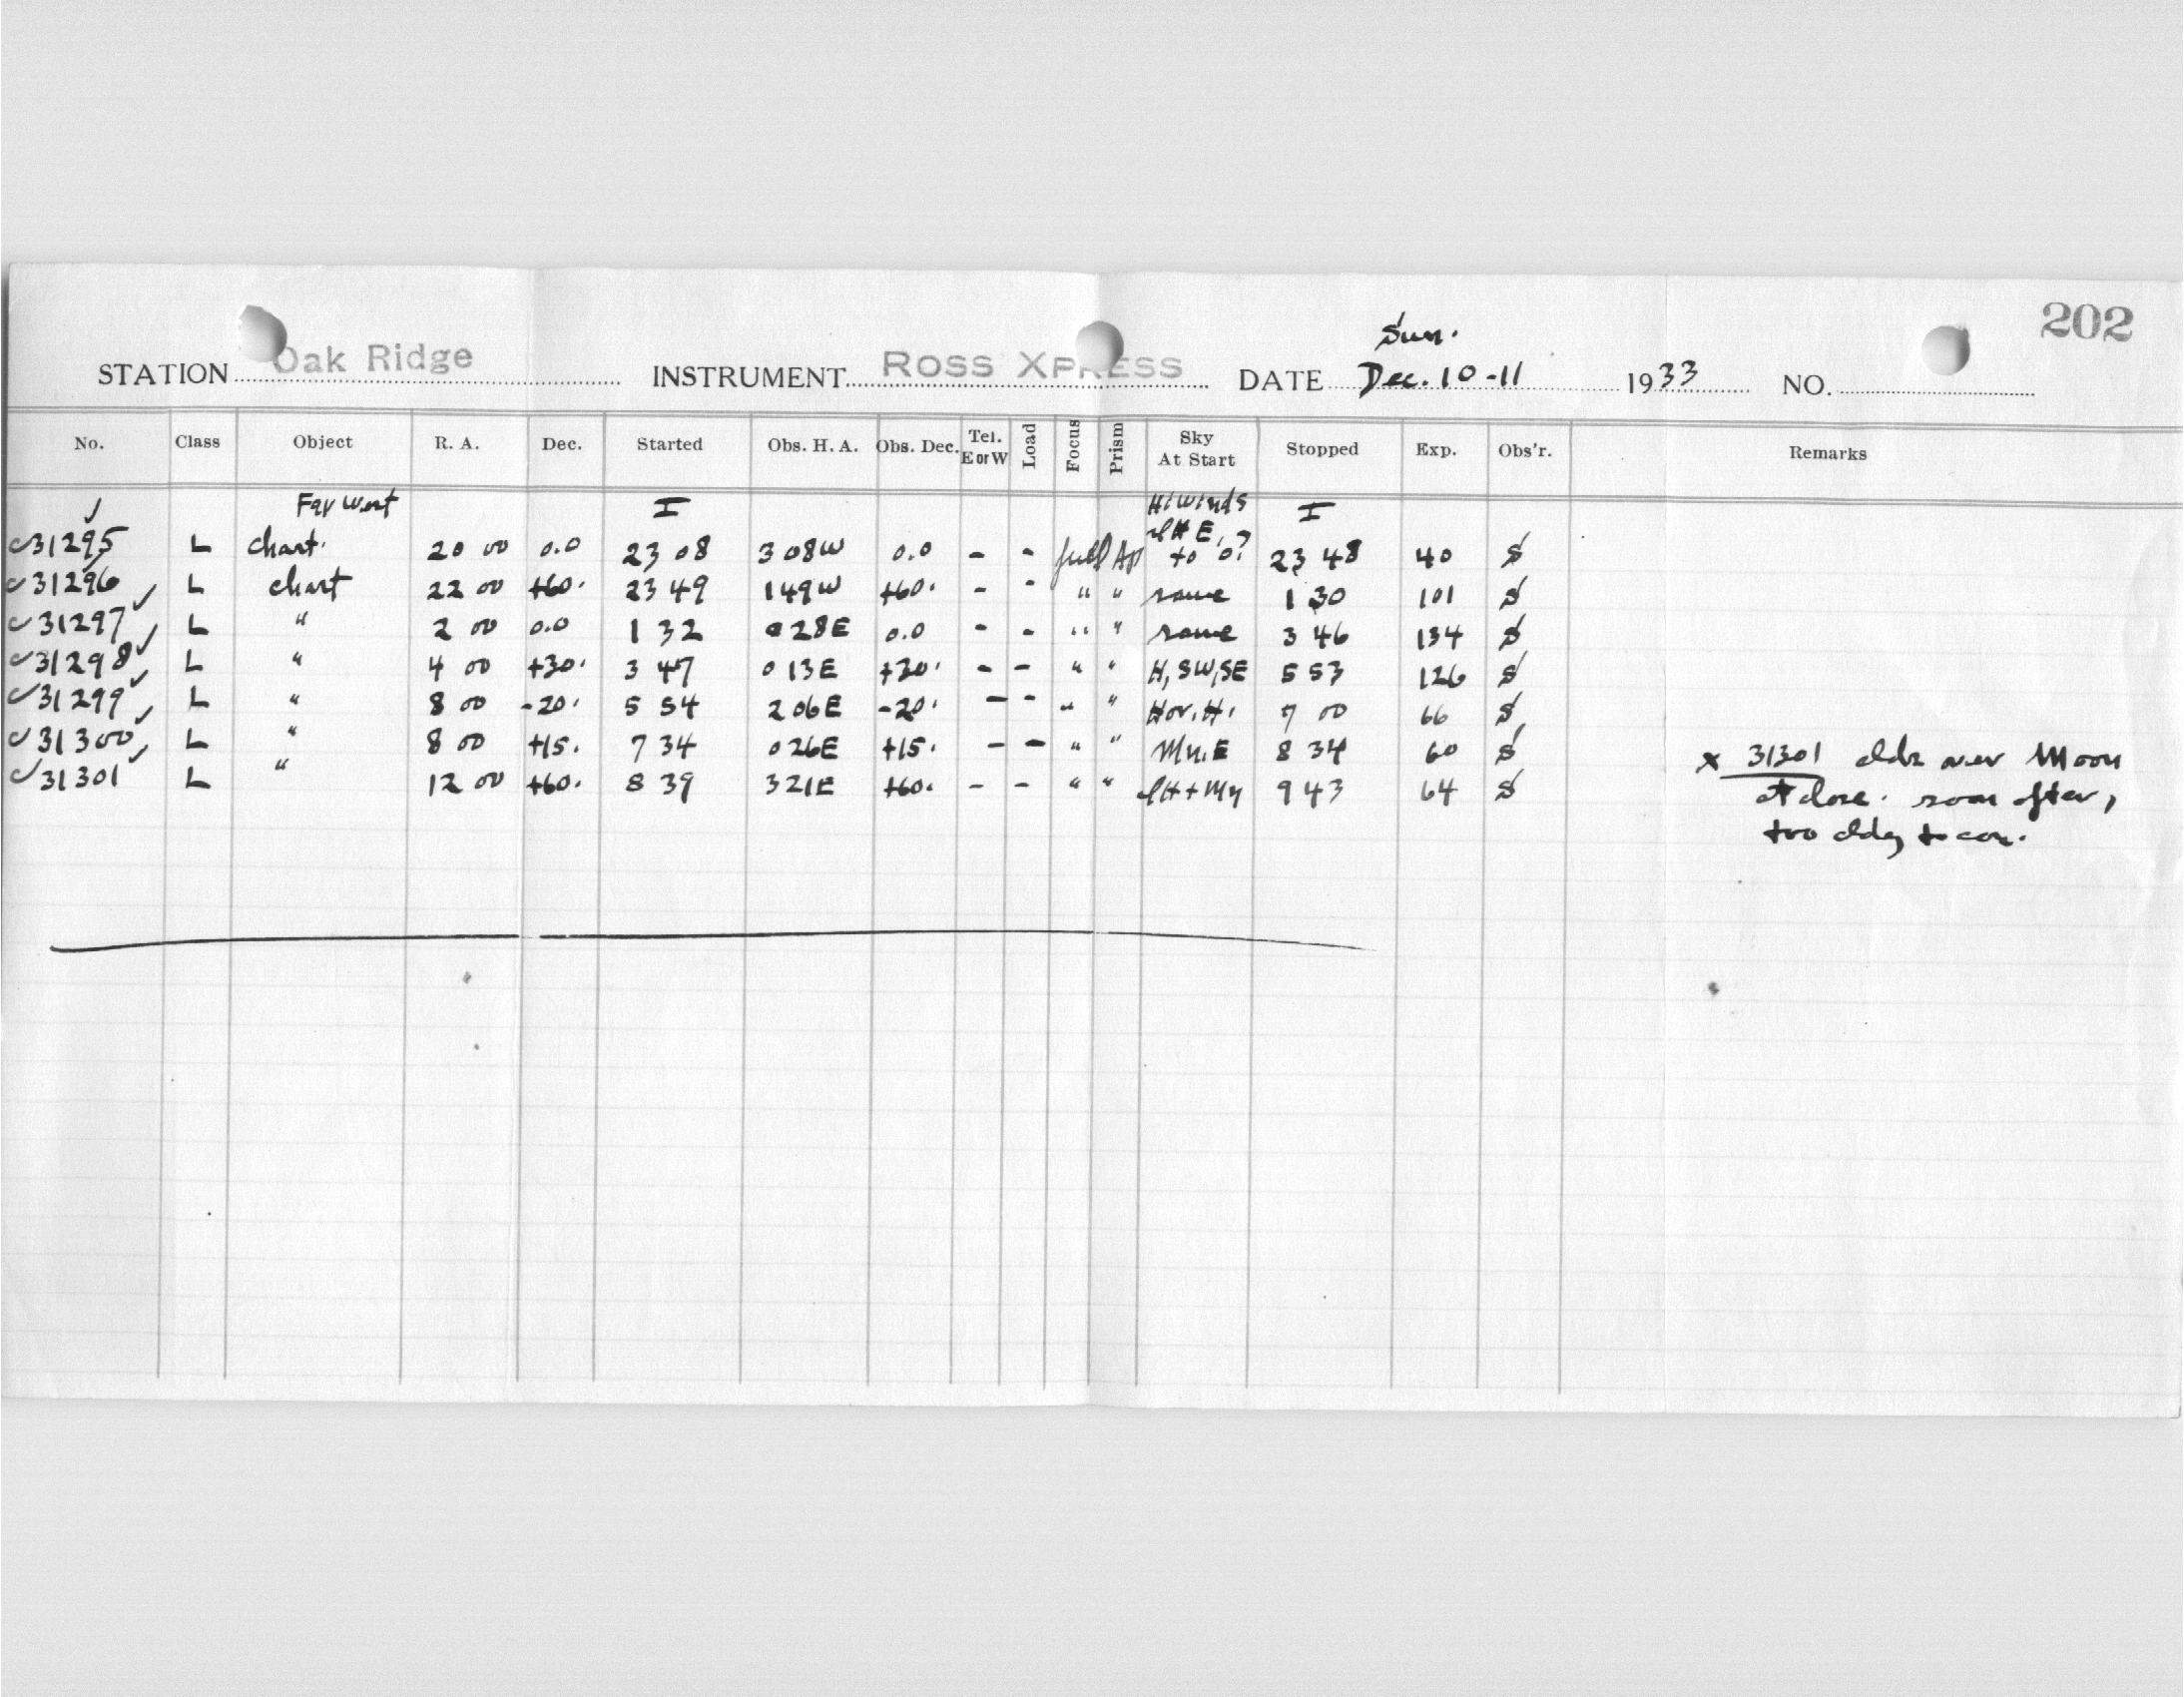 202
Sun.
STATION Oak Ridge INSTRUMENT ROSS XPRESS DATE Dec. 10-11 1933 NO.
No. Class Object R. A. Dec. Started Obs. H. A. Obs. Dec. Tel. E or W Load Focus Prism Sky At Start Stopped Exp. Obs'r. Remarks
Far West I Hi winds I
c31295 L chart. 20 00 0.0 23 08 3 08W 0.0 - - full Ap to 0? 23 48 40 S
c31296 L chart 22 00 +60. 23 49 1 49W +60. - - " " same 1 30 101 S
c31297 L " 2 00 0.0 1 32 0 28E 0.0 - - " " same 3 46 134 S
c31298 L " 4 00 +30. 3 47 0 13E +30. - - " " H, SW, SE 5 53 126 S
c31299 L " 8 00 -20. 5 54 2 06E -20. - - " " Hor. H. 7 00 66 S
c31300 L " 8 00 +15. 7 34 0 26E +15. - - " " Mn. E 8 34 60 S
c31301 L " 12 00 +60. 8 39 3 21E +60. - - " " H + Mn 9 43 64 S
x 31301 clds over Moon
at close. soon after,
too cldy to con.